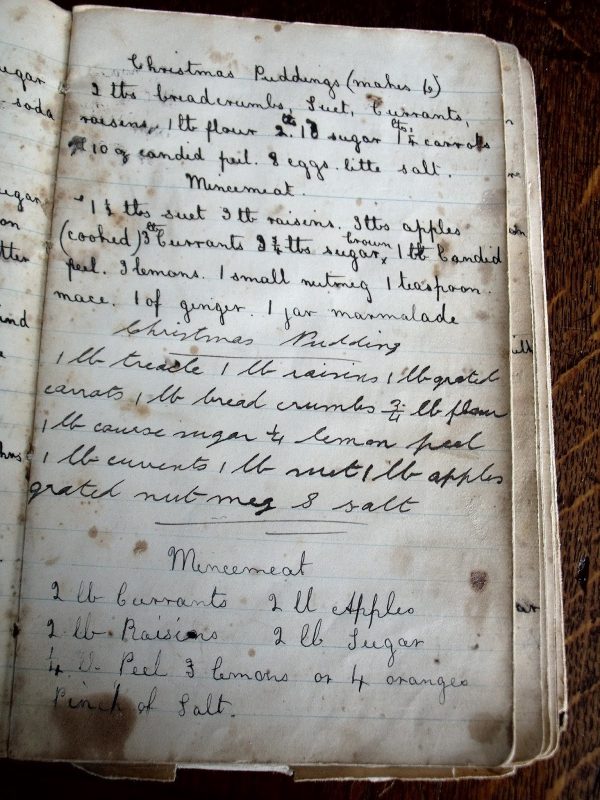 Christmas Puddings (makes 6)
2 lbs breadcrumbs, Suet, Currants,
raisins, 1 lb flour 2 lbs sugar 1¼ lbs carrots
10 oz candid peil. 8 eggs. litte salt.
Mincemeat.
1½ lbs suet 3 lb raisins. 3 lbs apples
(cooked) 3 lbs Currants 3¼ lbs sugar, brown 1 lb Candid
peil. 3 lemons. 1 small nutmeg 1 teaspoon.
mace. 1 of ginger. 1 jar marmalade
Christmas Pudding
1 lb treacle 1 lb raisins 1 lb grated
carrots 1 lb bread crumbs ¾ lb flour
1 lb course sugar ¼ lemon peel
1 lb currents 1 lb suet 1 lb apples
grated nut meg & salt
Mincemeat
2 lb Currants 2 ll Apples
2 lb Raisins 2 lb Sugar
¼ lb Peel 3 lemons or 4 oranges
Pinch of Salt.
ugar
soda
ugar
on
tter
ind